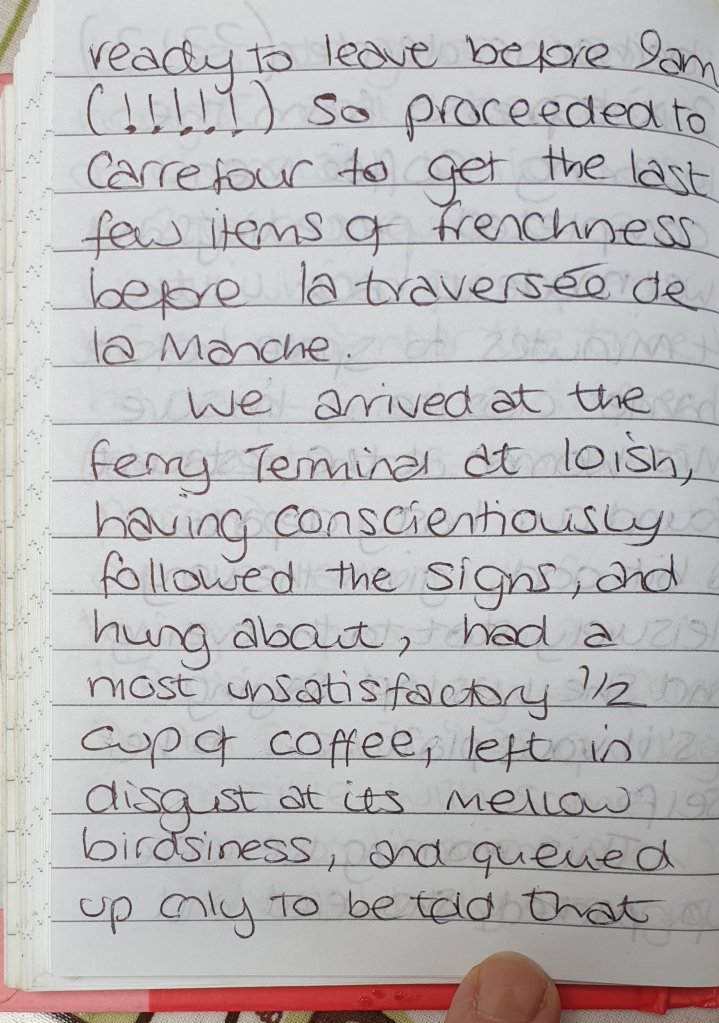 ready to leave before 9am
(!!!!!!) so proceeded to
Carrefour to get the last
few items of frenchness
before la traversée de
la Manche.
We arrived at the
ferry Terminal at 10ish,
having conscientiously
followed the signs, and
hung about, had a
most unsatisfactory 1/2
cup of coffee, left in
disgust at its mellow
birdsiness, and queued
up only to be told that